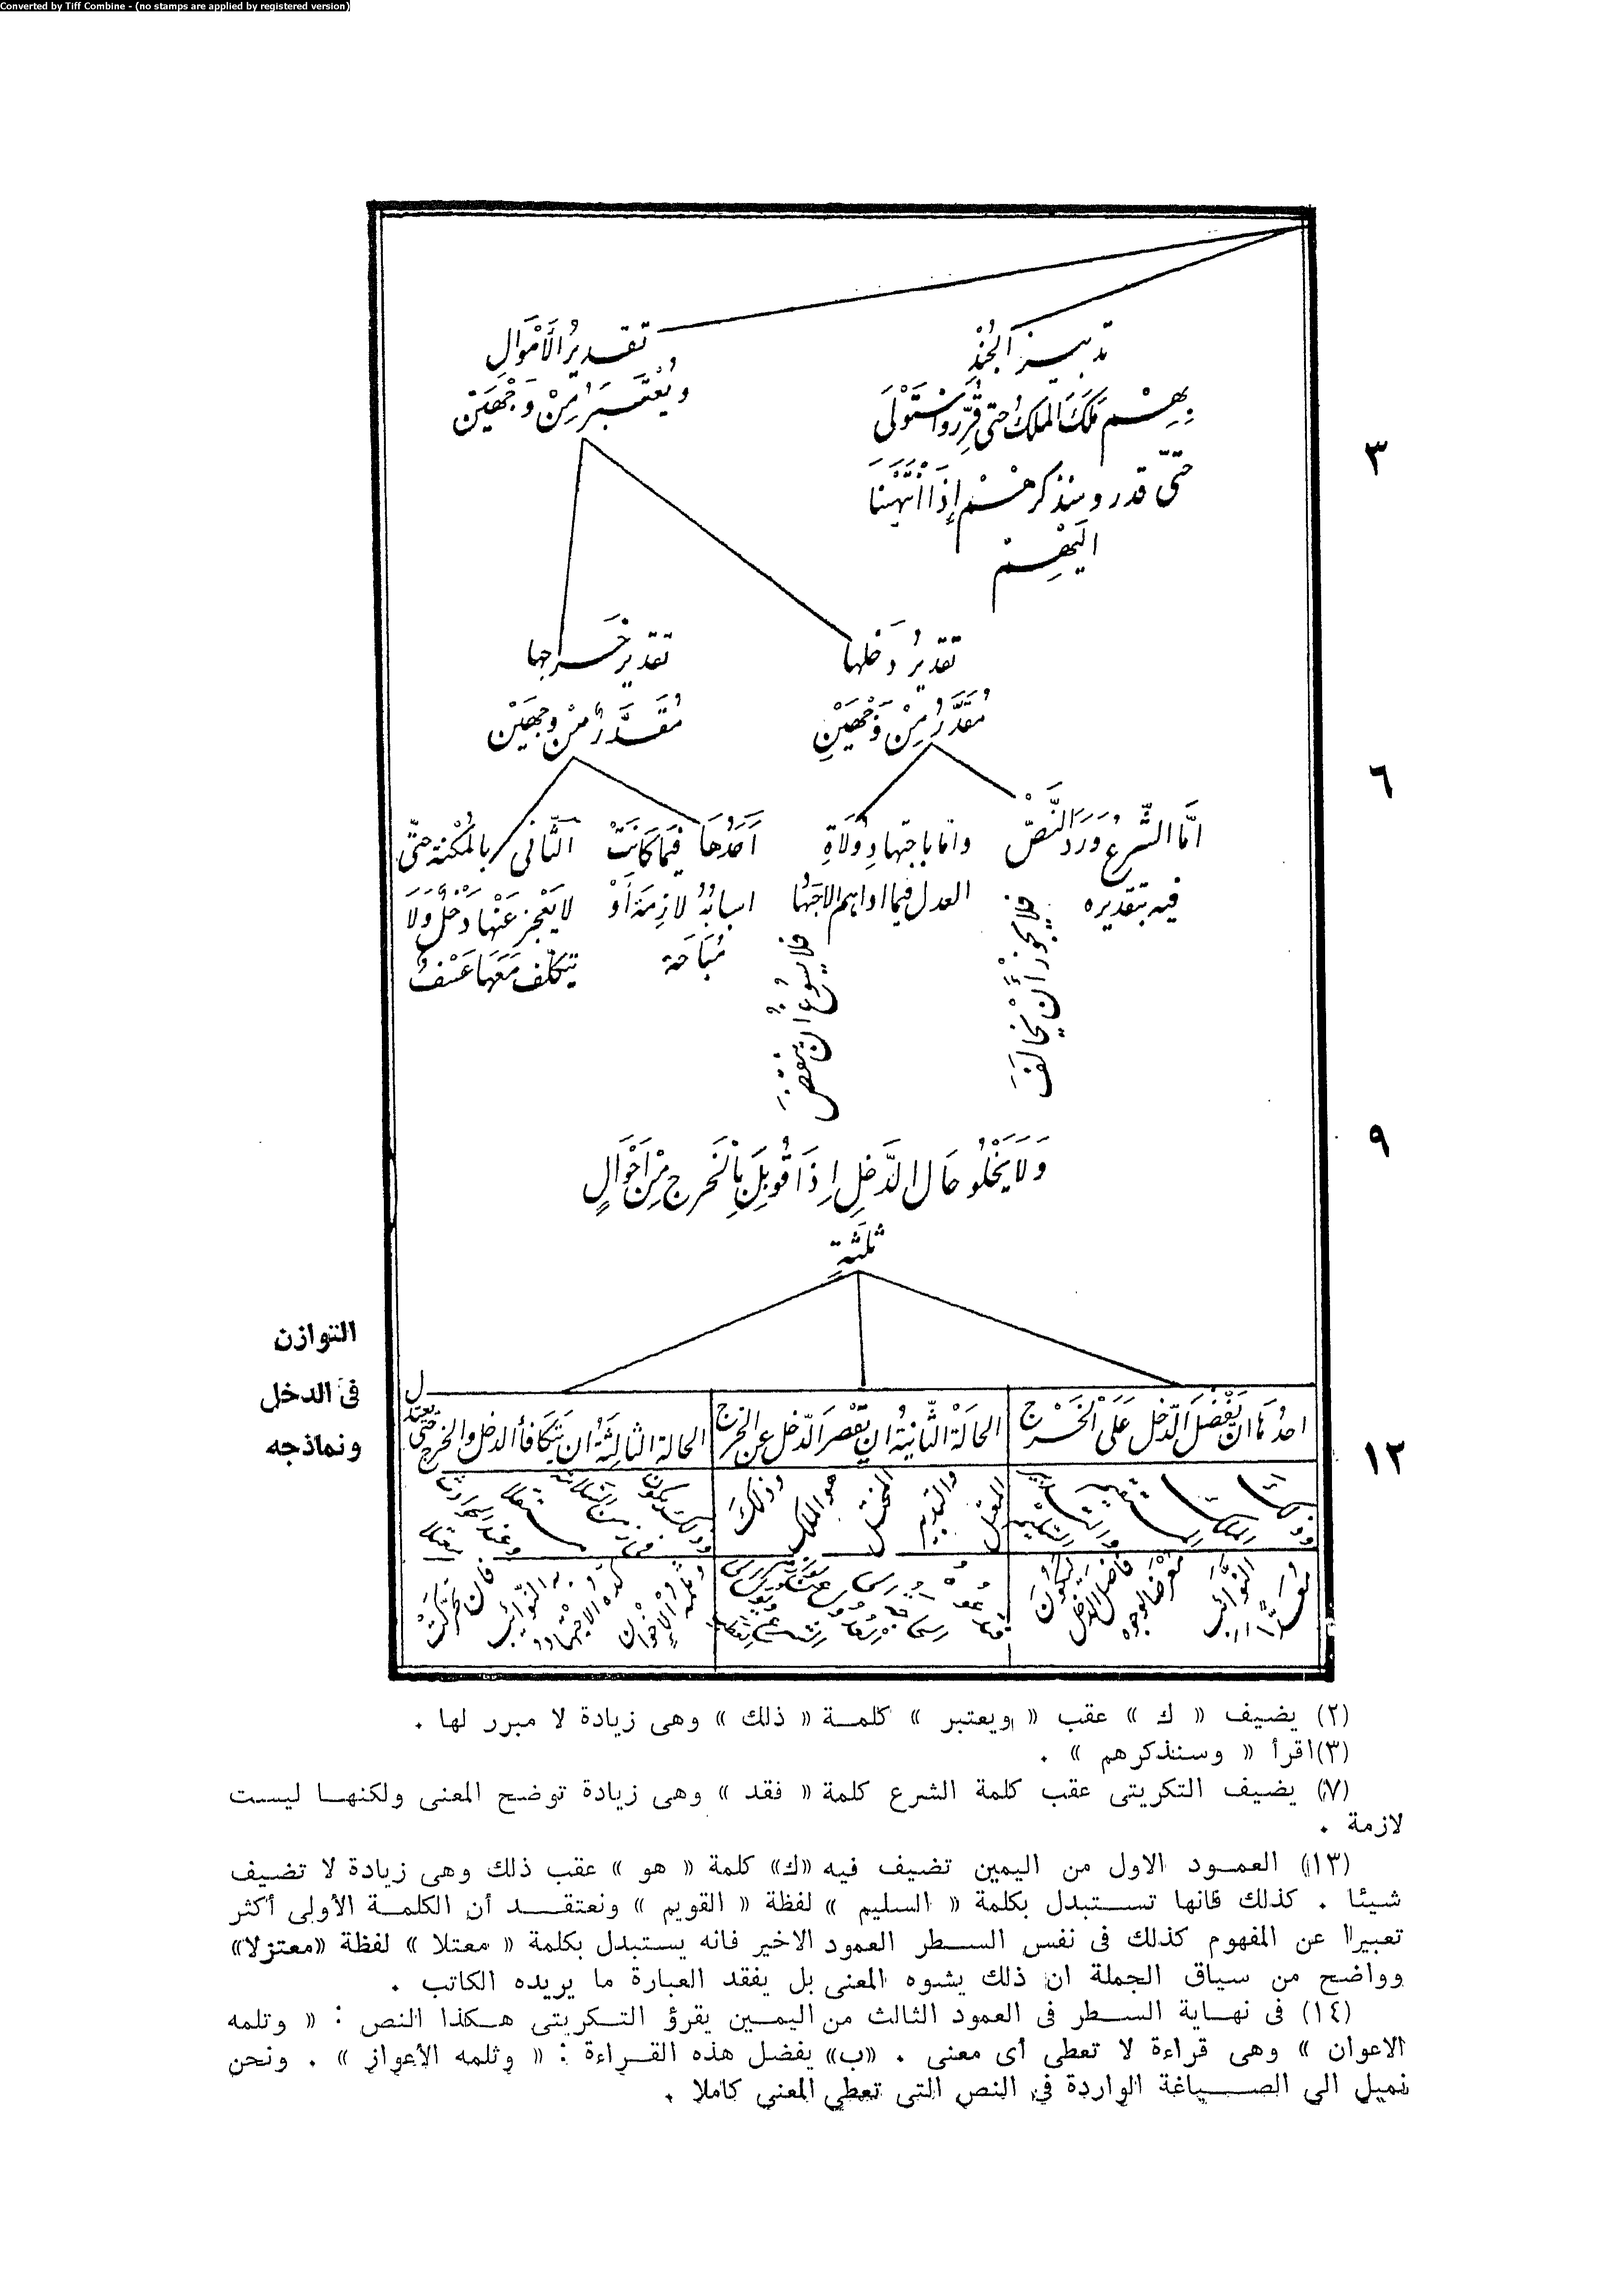 Converted by Tiff Combine - (no stamps are applied by registered version)
تدبير الجُنْدِ
تقدير الأَمْوَالِ
بِهِمْ مَلَكَ المَلِكُ حتى قُرِّر وَاسْتَوْلَى
ويُعْتَبَرُ مِنْ وَجْهَيْن
٣
حَتَّى قدر وسنذكرهُمْ إِذَا انْتَهَيْنَا
اليْهِمْ
تقديرُ دَخْلها
تقدير خَرجها
مُقَدَّرٌ مِنْ وَجْهَيْنِ
مُقَدَّرٌ مِنْ وجهَيْن
٦
امَّا الشَّرعُ وَرَدَ النَّصّ
فيه بتقديره
فلا يجوزُ أَنْ يخالَفَ
وامّا باجتهادِ وُلَاةِ
العدل فيما اداهم الاجتها
فلا يسُوغُ ان ينقضَ
أَحَدُهَا فِيمَا كَانَتْ
اسبابُهُ لازمَة أَوْ
مُبَاحَة
الثَّانى بالمُكْنَة حتّى
لا يَعْجِز عَنْهَا دَخْلٌ وَلَا
يتكلّف مَعَهَا عَسْفٌ
٩
وَلَا يَخْلُو حَال الدَّخلِ اِذَا قُوبِلَ بِالخَرجِ مِنْ اَحْوَالٍ
ثلثةٍ
التوازن
فى الدخل
ونماذجه
١٢
احدُهَا ان يَفْضُلَ الدَّخل عَلَى الخَرْج
الحَالَة الثَّانِيَةُ ان يَقْصرَ الدّخل عن الخرج
الحالة الثالِثَةُ ان يَتكَافأ الدخل والخرج حتى
وذلكَ هو الملك المختل والتدبير المعتل
ليكُونَ فاضل الدّخل مُعَرّضا لوجوه النّوائب
(٢) يضيف « ك » عقب « ويعتبر » كلمة « ذلك » وهى زيادة لا مبرر لها .
(٣)اقرأ « وسنذكرهم » .
(٧) يضيف التكريتى عقب كلمة الشرع كلمة « فقد » وهى زيادة توضح المعنى ولكنها ليست
لازمة .
(١٣) العمود الاول من اليمين تضيف فيه «ك» كلمة « هو » عقب ذلك وهى زيادة لا تضيف
شيئا . كذلك فانها تستبدل بكلمة « السليم » لفظة « القويم » ونعتقد أن الكلمة الأولى أكثر
تعبيرا عن المفهوم كذلك فى نفس السطر العمود الاخير فانه يستبدل بكلمة « معتلا » لفظة «معتزلا»
وواضح من سياق الجملة ان ذلك يشوه المعنى بل يفقد العبارة ما يريده الكاتب .
(١٤) فى نهاية السطر فى العمود الثالث من اليمين يقرؤ التكريتى هكذا النص : « وتلمه
الاعوان » وهى قراءة لا تعطى أى معنى . «ب» يفضل هذه القراءة : « وثلمه الأعواز » . ونحن
نميل الى الصياغة الواردة فى النص التى تعطى المعنى كاملا .